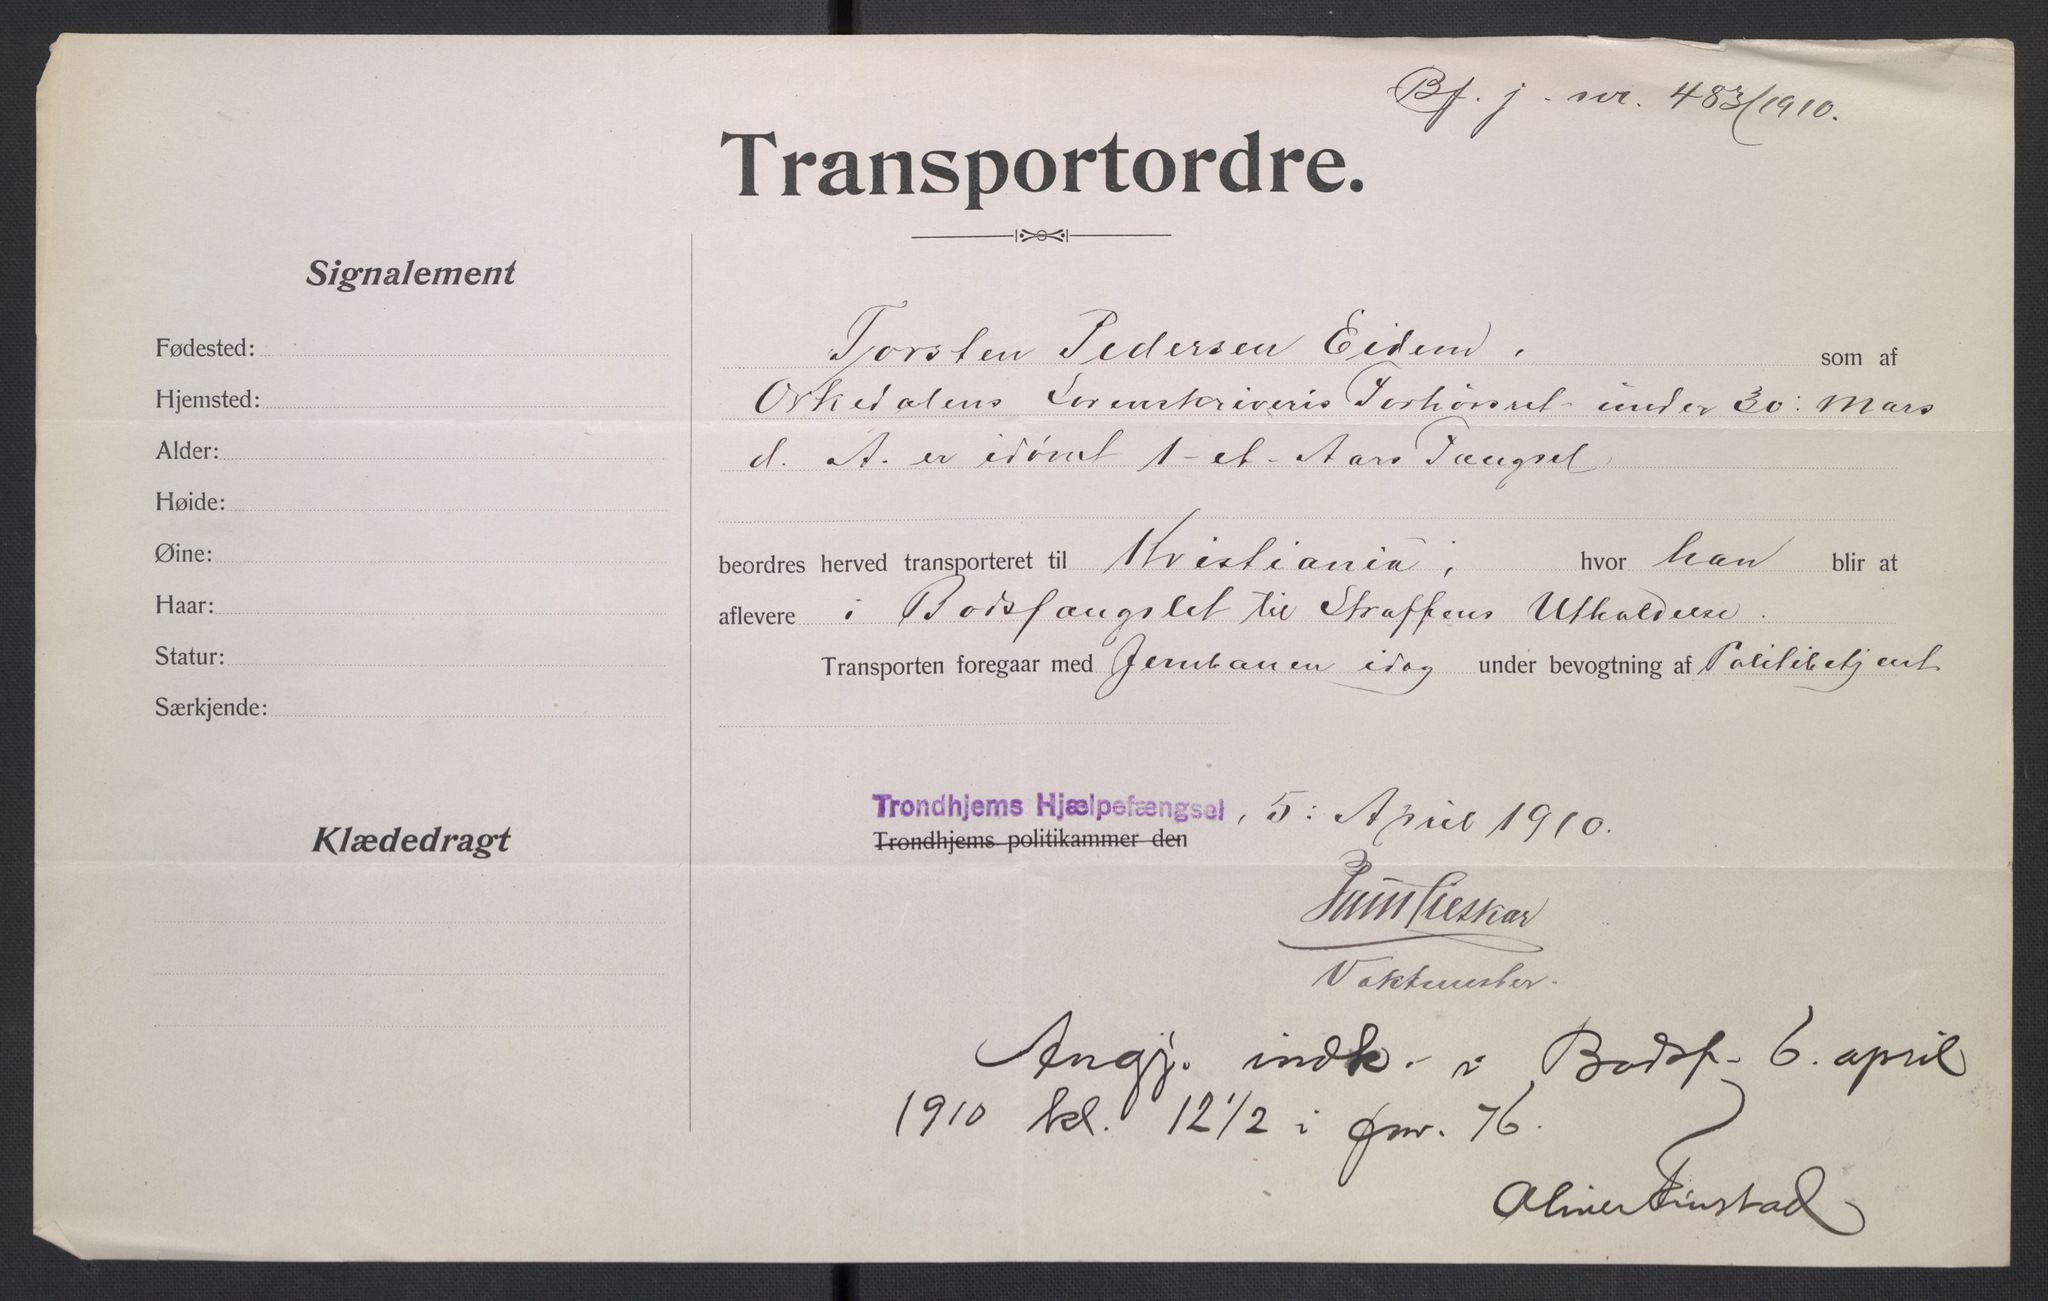 Bf. j. nr. 483/1910.
Transportordre.
Signalement
Fødested:
Hjemsted:
Alder:
Høide:
Øine:
Haar:
Statur:
Særkjende:
Klædedragt
Torsten Pedersen Eidem, som af
Orkedalens Sorenskriveris Forhørsret under 30: Mars
d. A. er idømt 1 - et - Aars Fængsel
beordres herved transporteret til Kristiania, hvor han blir at
aflevere i Bodsfængslet til Straffens Utholdelse.
Transporten foregaar med Jernbanen idag under bevogtning af Politibetjent
Trondhjems Hjælpefængsel, 5: April 1910.
Trondhjems politikammer den
Vaktmester.
Angj. indk. i Bodsf. 6. april
1910 kl. 12 1/2 i fnr. 76.
Oliver Finstad